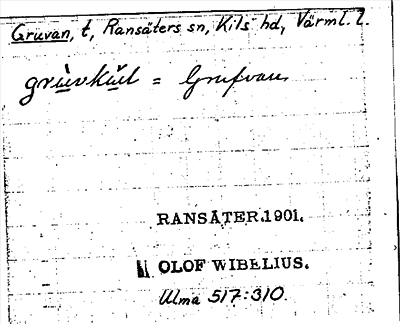 Gruvan, t, Ransäters sn, Kils hd, Värml. l.
= Grufvan
RANSÄTER.1901.
OLOF WIBELIUS.
Ulma 517:310.